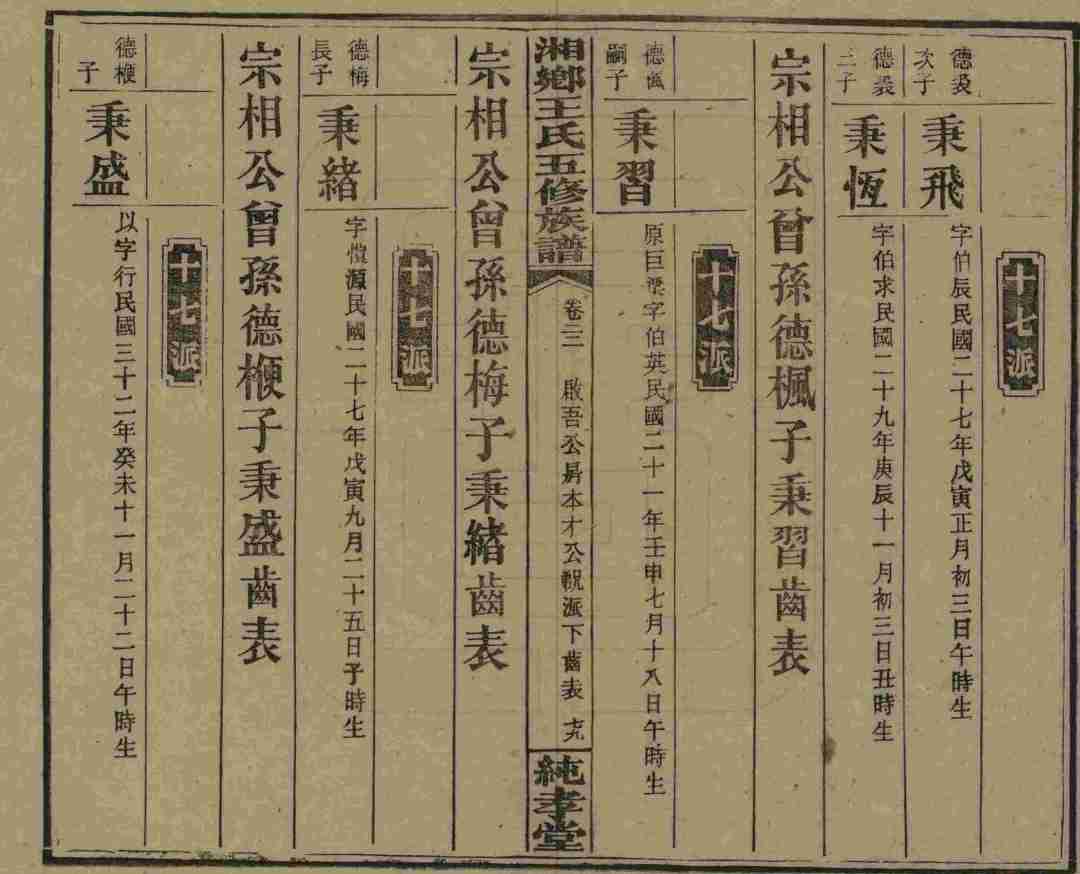 十七派
德義
次子
秉飛
字伯辰民國二十七年戊寅正月初三日午時生
德義
三子
秉恆
字伯求民國二十九年庚辰十一月初三日丑時生
宗相公曾孫德楓子秉習齒表
十七派
德楓
嗣子
秉習
原巨 字伯英民國二十一年壬申七月十八日午時生
湘鄉王氏五修族譜
卷二二
啟吾公昺本才公 派下齒表
純孝堂
宗相公曾孫德梅子秉緒齒表
十七派
德梅
長子
秉緒
字愷源民國二十七年戊寅九月二十五日子時生
宗相公曾孫德楩子秉盛齒表
十七派
德楩
子
秉盛
以字行民國三十二年癸未十一月二十二日午時生